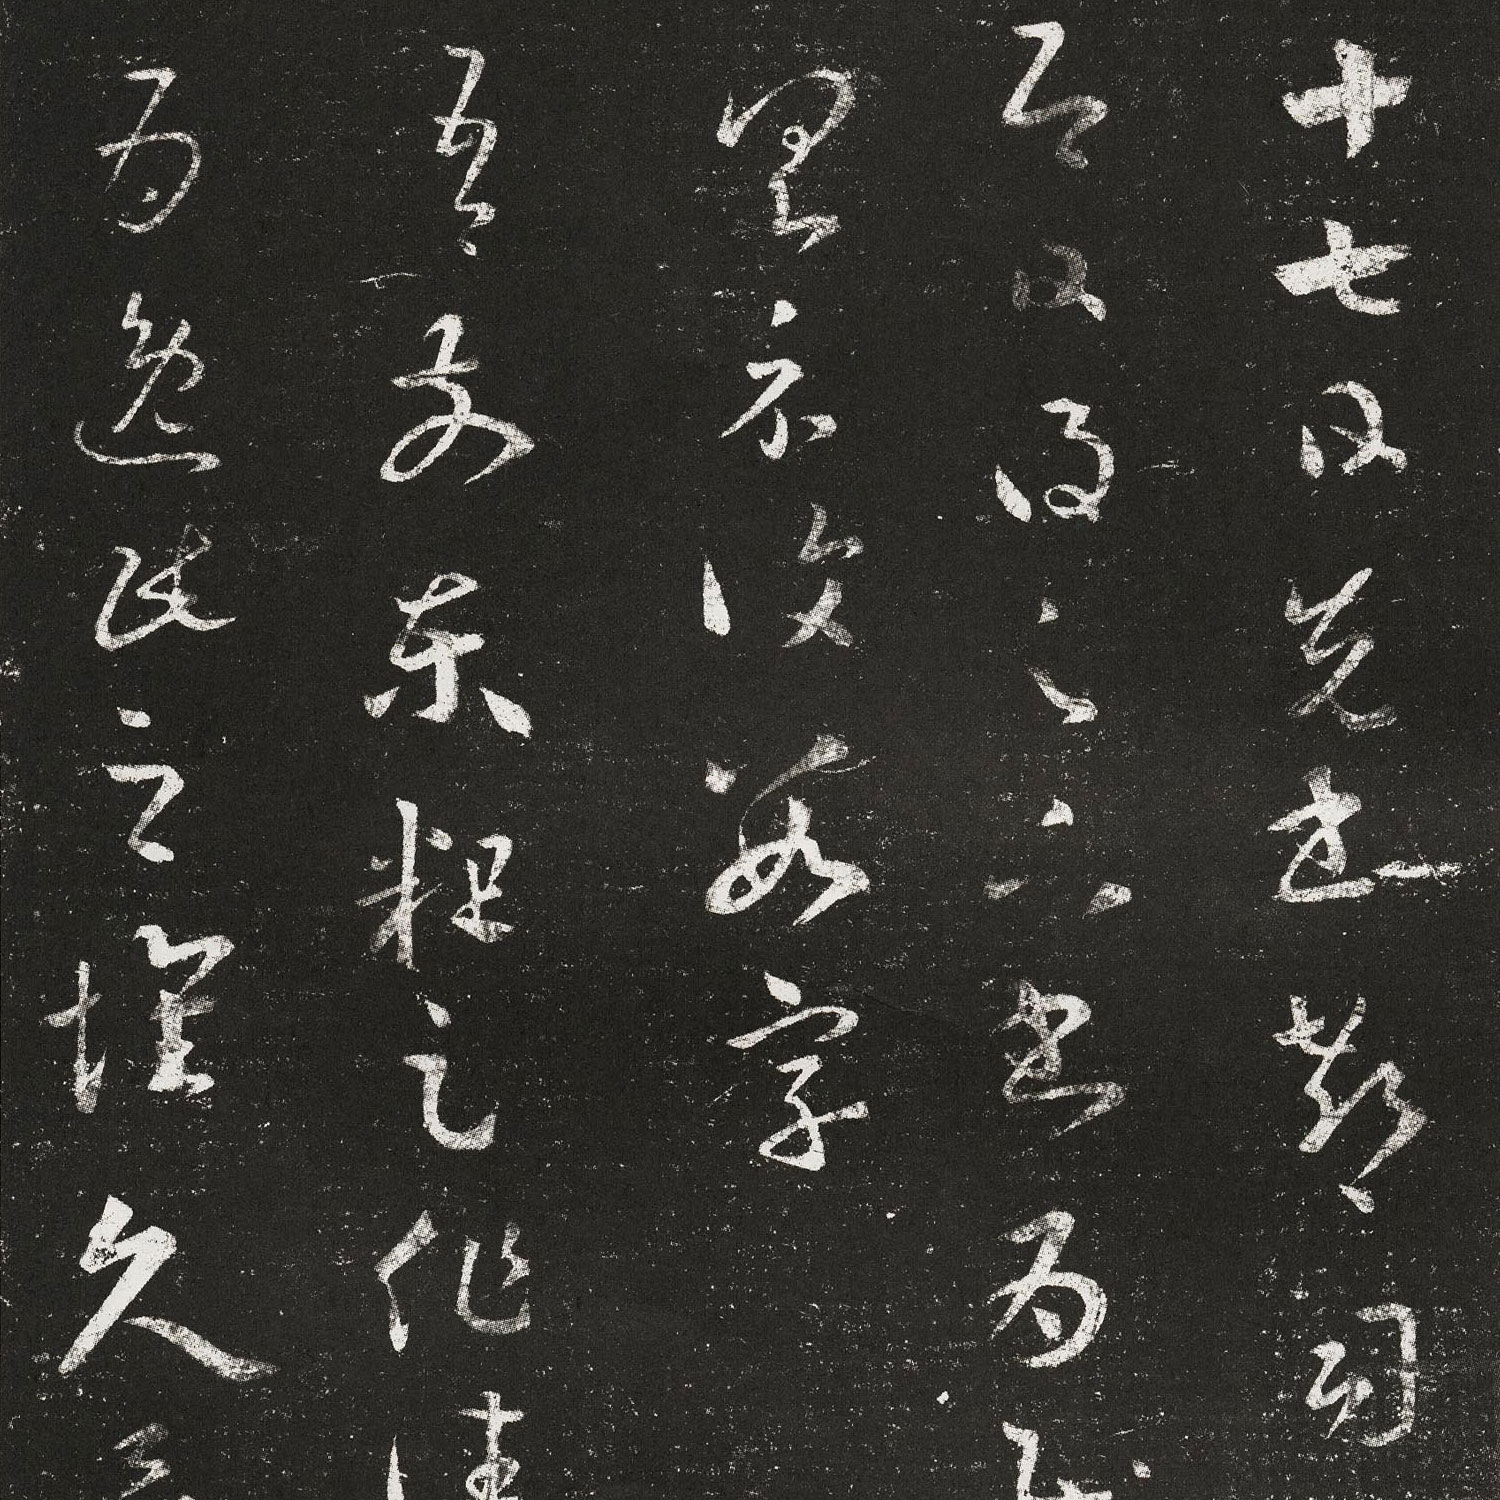 十七日先書郗司
即日得足下書為慰
具示復數字
吾前東粗足作佳
為逸民之懷久矣